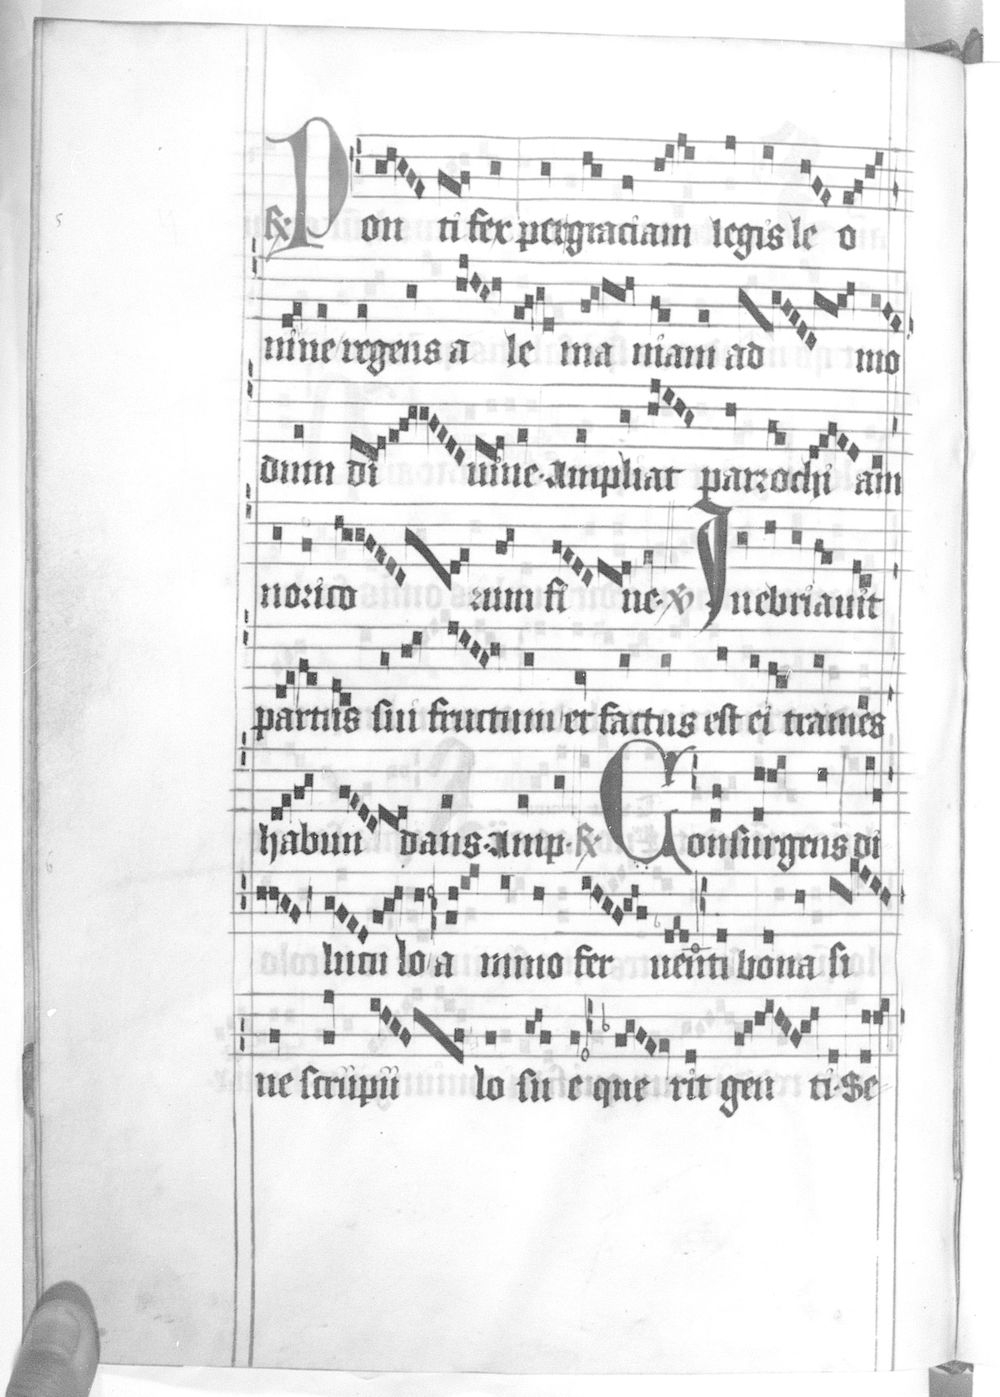 ℟. Pon ti fex pergraciam legis le o
nine regens a le ma niam ad mo
dum di uine. Ampliat parrochi am
norico rum fi ne. ℣ Inebriauit
partus sui fructum et factus est ei trames
habun dans. Amp. ℟. Consurgens di
lucu lo a nimo fer uenti bona si
ne scrupu lo su e que rit gen ti. Se